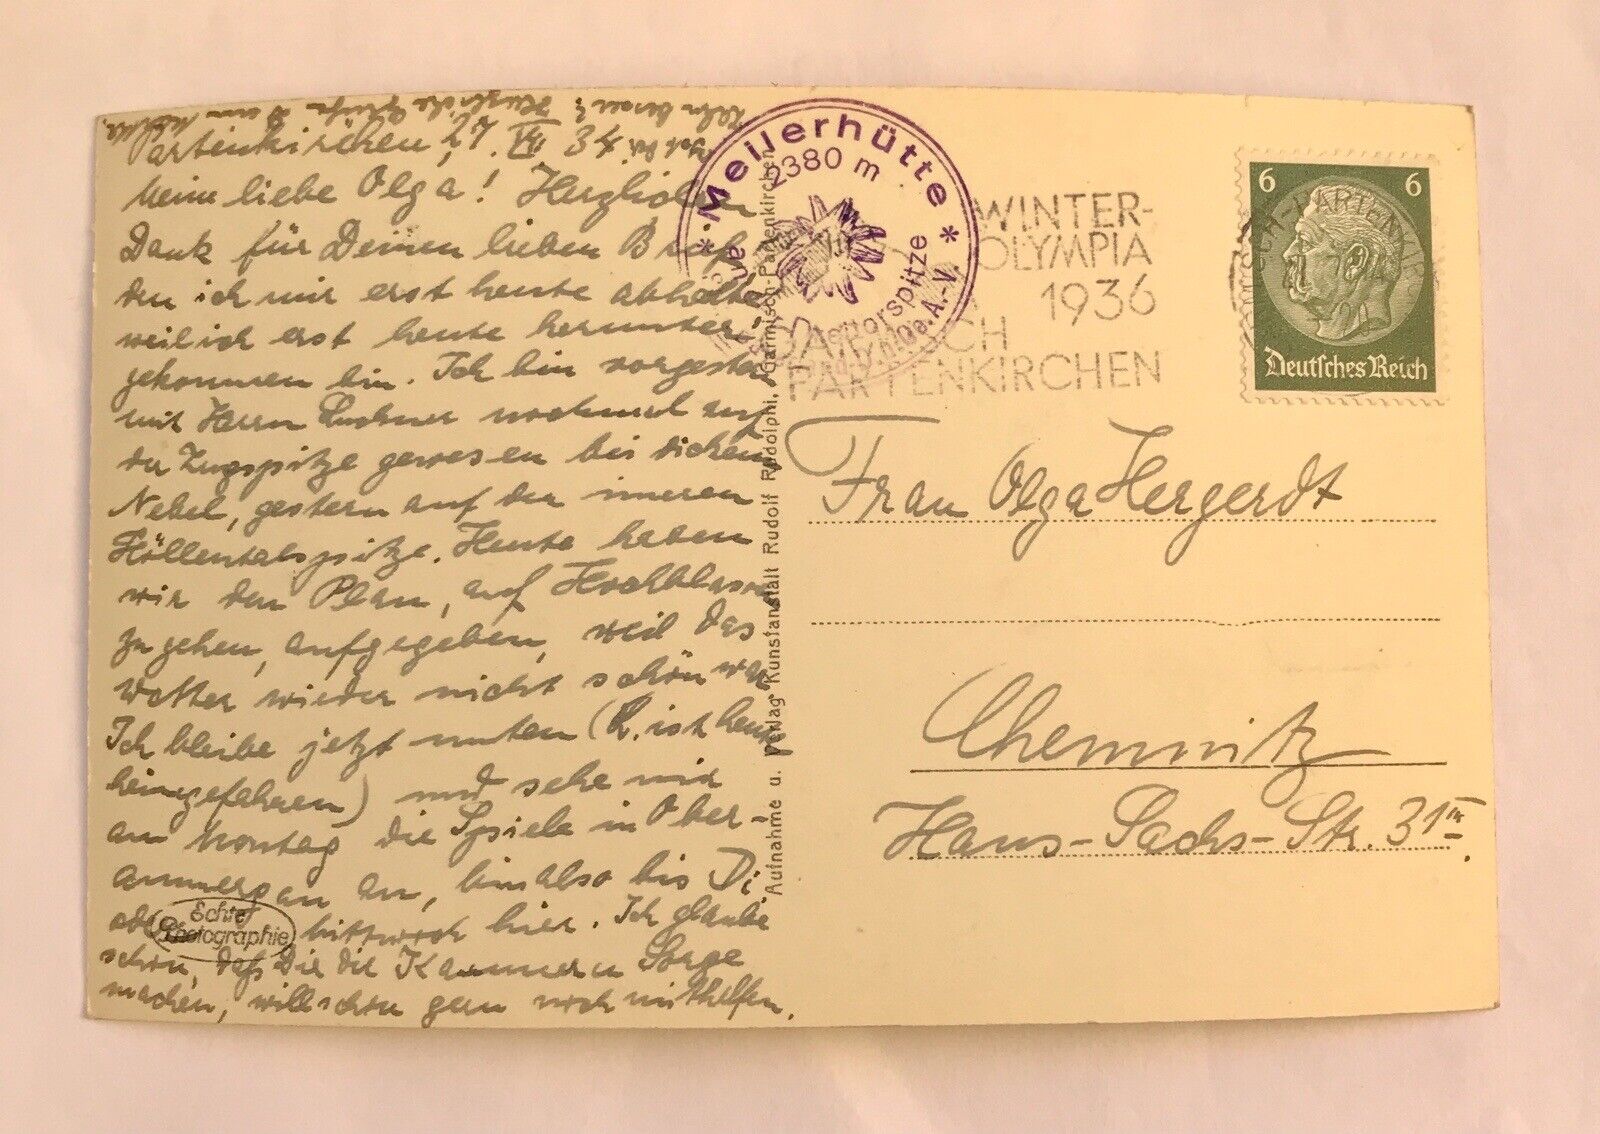 Partenkirchen,
Meine liebe Olga! Herzlichen
Dank für Deinen lieben Brief,
den ich mir erst heute abholte
weil ich erst heute herunter
gekommen bin. Ich bin vorgestern
mit Herrn nochmal auf
der Zugspitze gewesen bei dichem
Nebel, gestern auf der inneren
Höllentalspitze. Heute haben
wir den Plan, auf Hochblassen
zu gehen, aufgegeben, weil das
Wetter wieder nicht schön war.
Ich bleibe jetzt unten (L. ist heute
heimgefahren) und sehe mir
am Montag die Spiele in Ober-
ammergau an, bin also bis Di
oder Mittwoch hier. Ich glaube
schon, daß Dir die Kammern Sorge
machen, will schon gern noch mithelfen.
Echte Photographie
Aufnahme u. Verlag Kunstanstalt Rudolf Rudolphi, Garmisch-Partenkirchen
* Meilerhütte *
2380 m
WINTER-
OLYMPIA
1936
GARMISCH
PARTENKIRCHEN
6 6
Deutsches Reich
Frau Olga Hergerdt
Chemnitz
Hans-Sachs-Str. 31III.